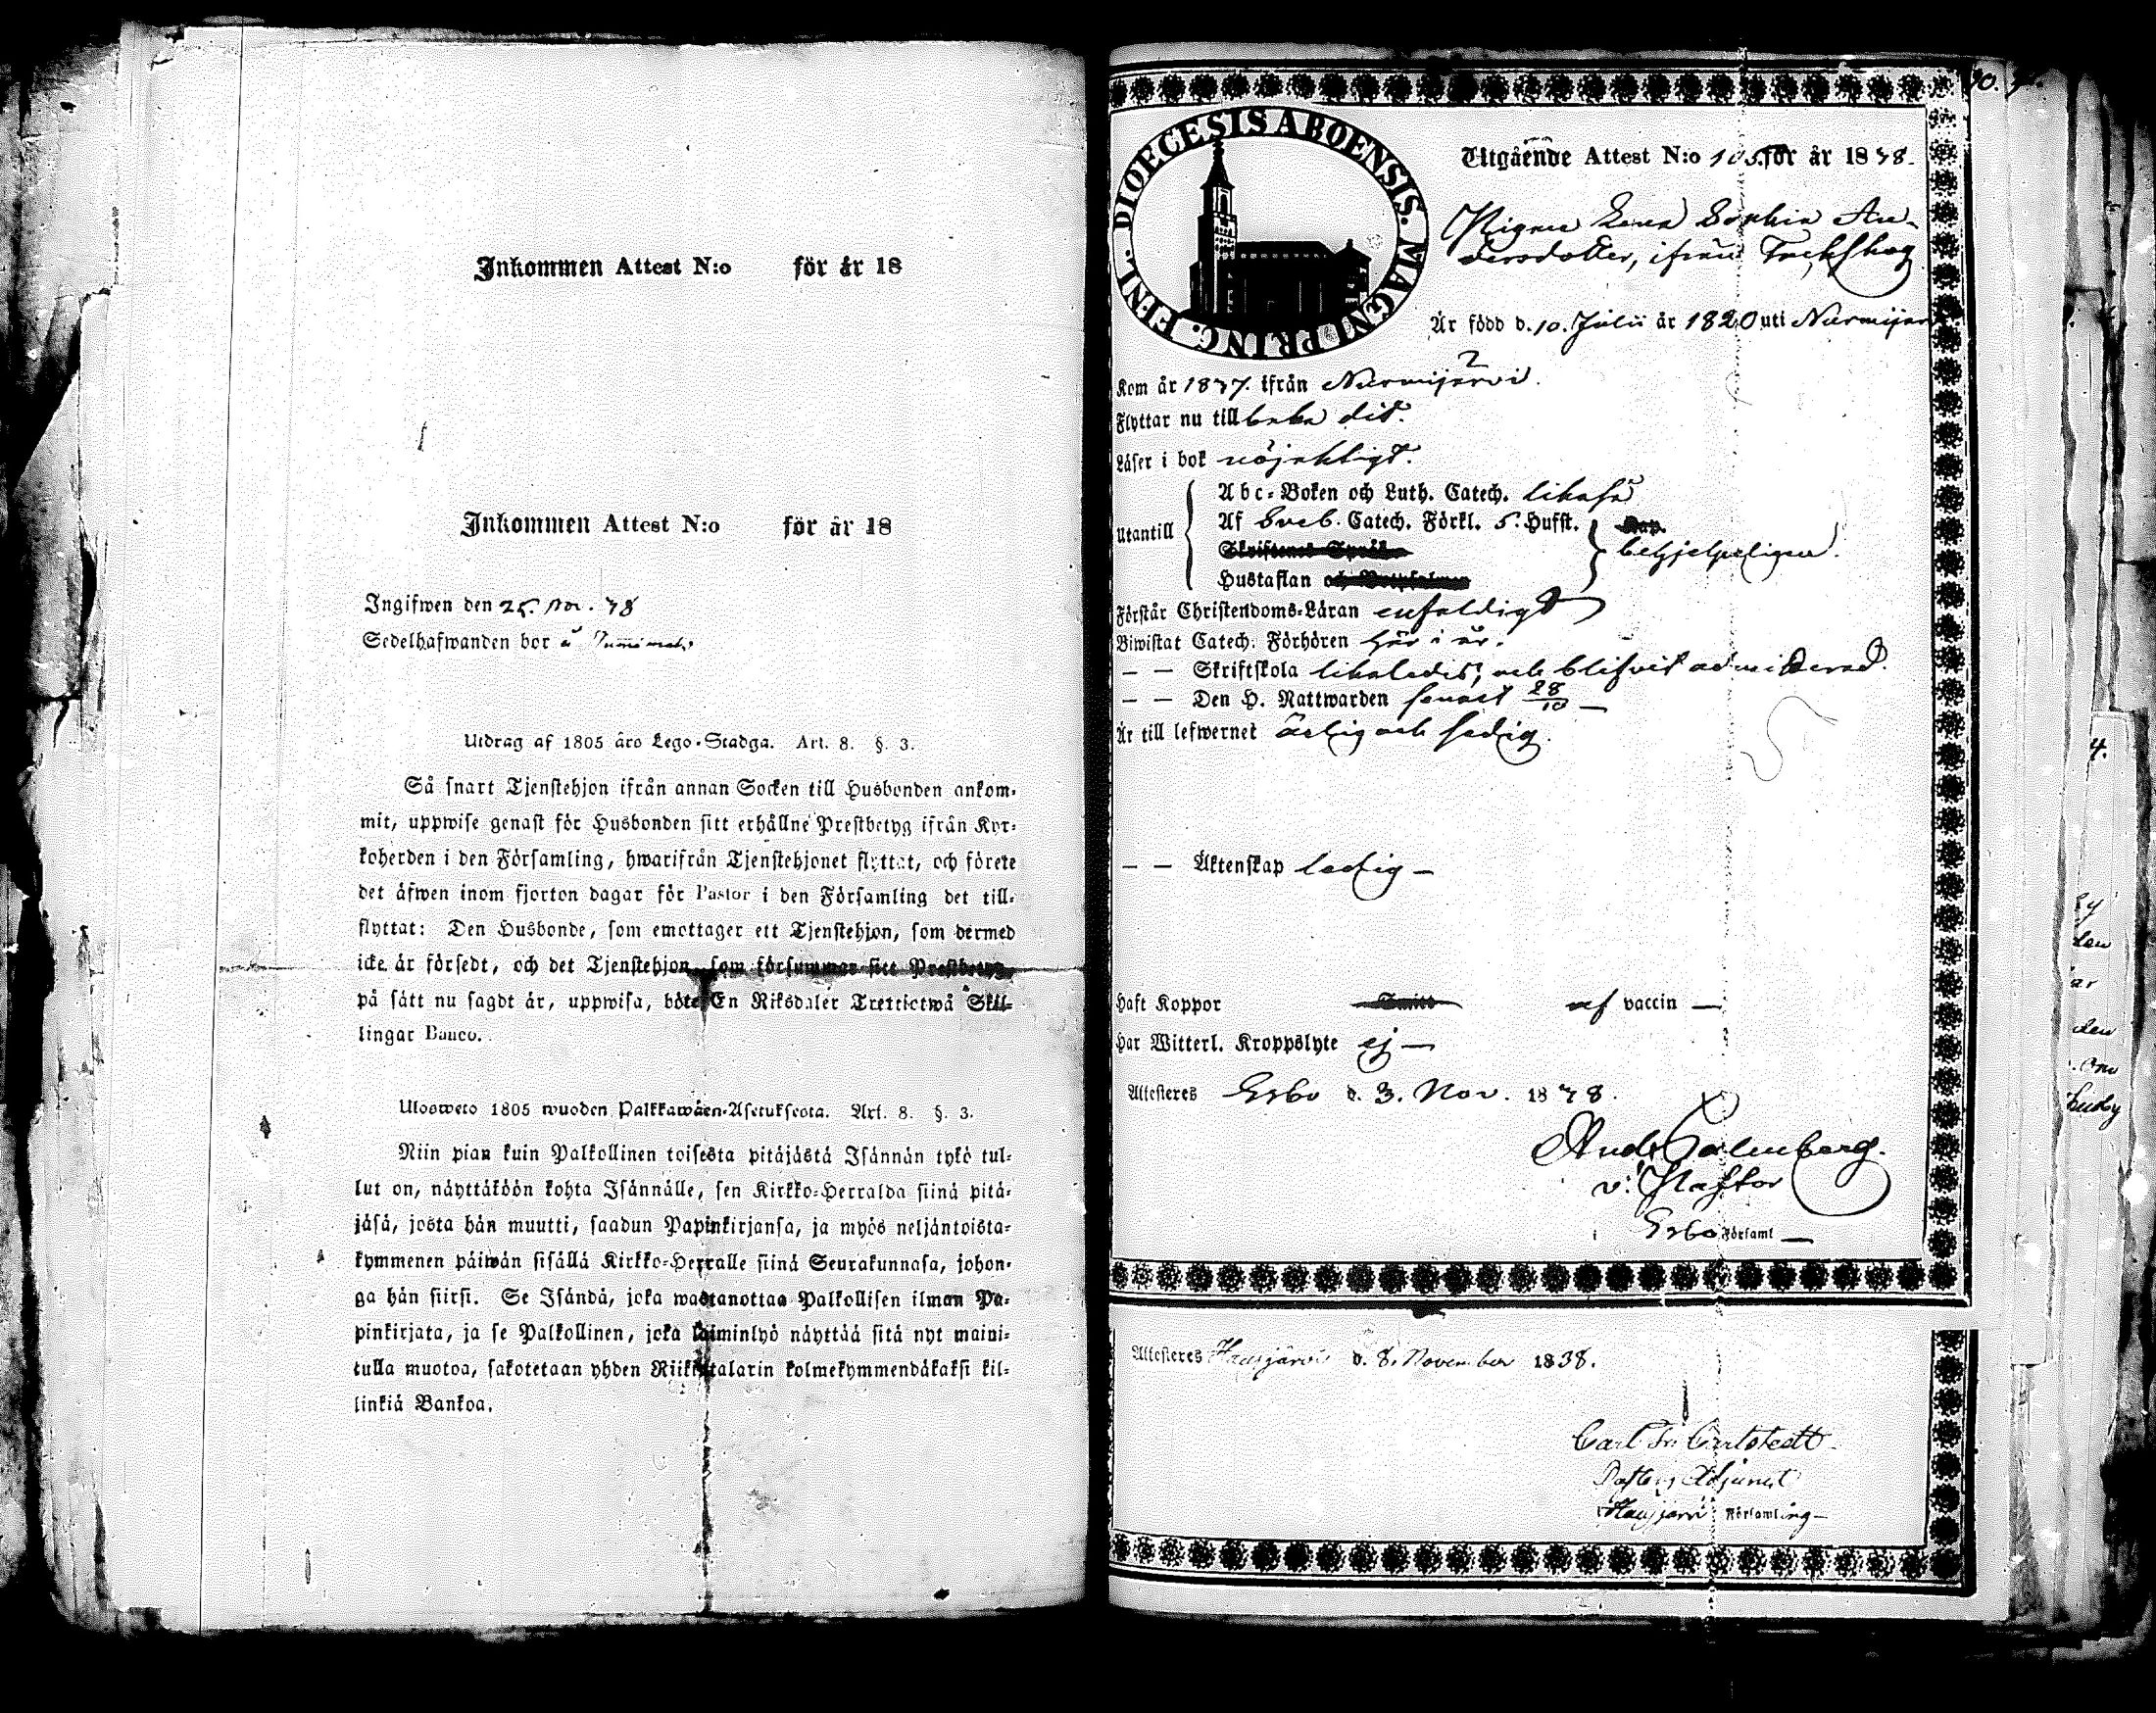 Inkommen Attest N:o för år 18
Inkommen Attest N:o för år 18
Ingifwen den 25. Nov. 38
Sedelhafwanden bor å
Utdrag af 1805 års Lego-Stadga. Art. 8. §. 3.
Så snart Tjenstehjon ifrån annan Socken till Husbonden ankom-
mit, uppwise genast för Husbonden sitt erhållne Prestbetyg ifrån Kyr-
koherden i den Församling, hwarifrån Tjenstehjonet flyttat, och förete
det äfwen inom fjorton dagar för Pastor i den Församling det till-
flyttat: Den Husbonde, som emottager ett Tjenstehjon, som dermed
icke är försedt, och det Tjenstehjon, som försummar sitt Prestbetyg,
på sätt nu sagdt är, uppwisa, böte En Riksdaler Trettiotwå Skil-
lingar Banco.
Ulosweto 1805 wuoden Palkkawäen-Asetuksesta. Art. 8. §. 3.
Niin pian kuin Palkollinen toisesta pitäjästä Isännän tykö tul-
lut on, näyttäköön kohta Isännälle, sen Kirkko-Herralda siinä pitä-
jäsä, josta hän muutti, saadun Papinkirjansa, ja myös neljäntoista-
kymmenen päiwän sisällä Kirkko-Herralle siinä Seurakunnasa, johon-
ga hän siirsi. Se Isändä, joka wastanottaa Palkollisen ilman Pa-
pinkirjata, ja se Palkollinen, joka laiminlyö näyttää sitä nyt maini-
tulla muotoa, sakotetaan yhden Riikintalarin kolmekymmendäkaksi kil-
linkiä Bankoa.
DIOECESIS ABOENSIS. MAGNI PRINC. FENL.
Utgående Attest N:o 105. för år 1838.
Pigan Lena Sophia An-
dersdotter, ifrån Fackskog
Är född d. 10. Julii år 1820 uti Nurmijärvi
Kom år 1837. ifrån Nurmijärvi.
Flyttar nu till baka dit.
Läser i bok nöjaktigt.
Utantill
Abc-Boken och Luth. Catech. likaså
Af Sveb. Catech. Förkl. 5. Hufst. Kap.
Skriftenes Språk behjelpeligen.
Hustaflan och Botpsalmer
Förstår Christendoms-Läran enfaldigt
Biwistat Catech. Förhören här i år.
— — Skriftskola likaledes, och blifvit admitterad.
— — Den H. Nattwarden senast 28/10 —
Är till lefwernet ärlig och sedig.
— — Äktenskap ledig —
Haft Koppor af vaccin —
Har Witterl. Kroppslyte ej —
Attesteres Esbo d. 3. Nov. 1838.
And. Malmberg.
v. Pastor
i Esbo Församl —
Attesteres Hausjärvi d. 8. November 1838.
Carl Fr. Carlstedt
Pastors Adjunct
i Hausjärvi Församling —